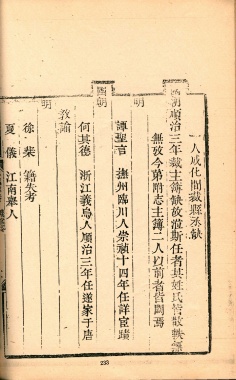 人成化間裁縣丞缺
國朝順治三年裁主簿缺故淮斯任者其姓氏皆散軼
無攷今第附志主簿二人以前者皆闕焉
明
譚聖言 撫州臨川人崇禎十四年任詳宦蹟
國朝
何其德 浙江義烏人順治三年任遂家于唐
教諭
明
徐柴 籍失考
夏儀 江南舉人
233